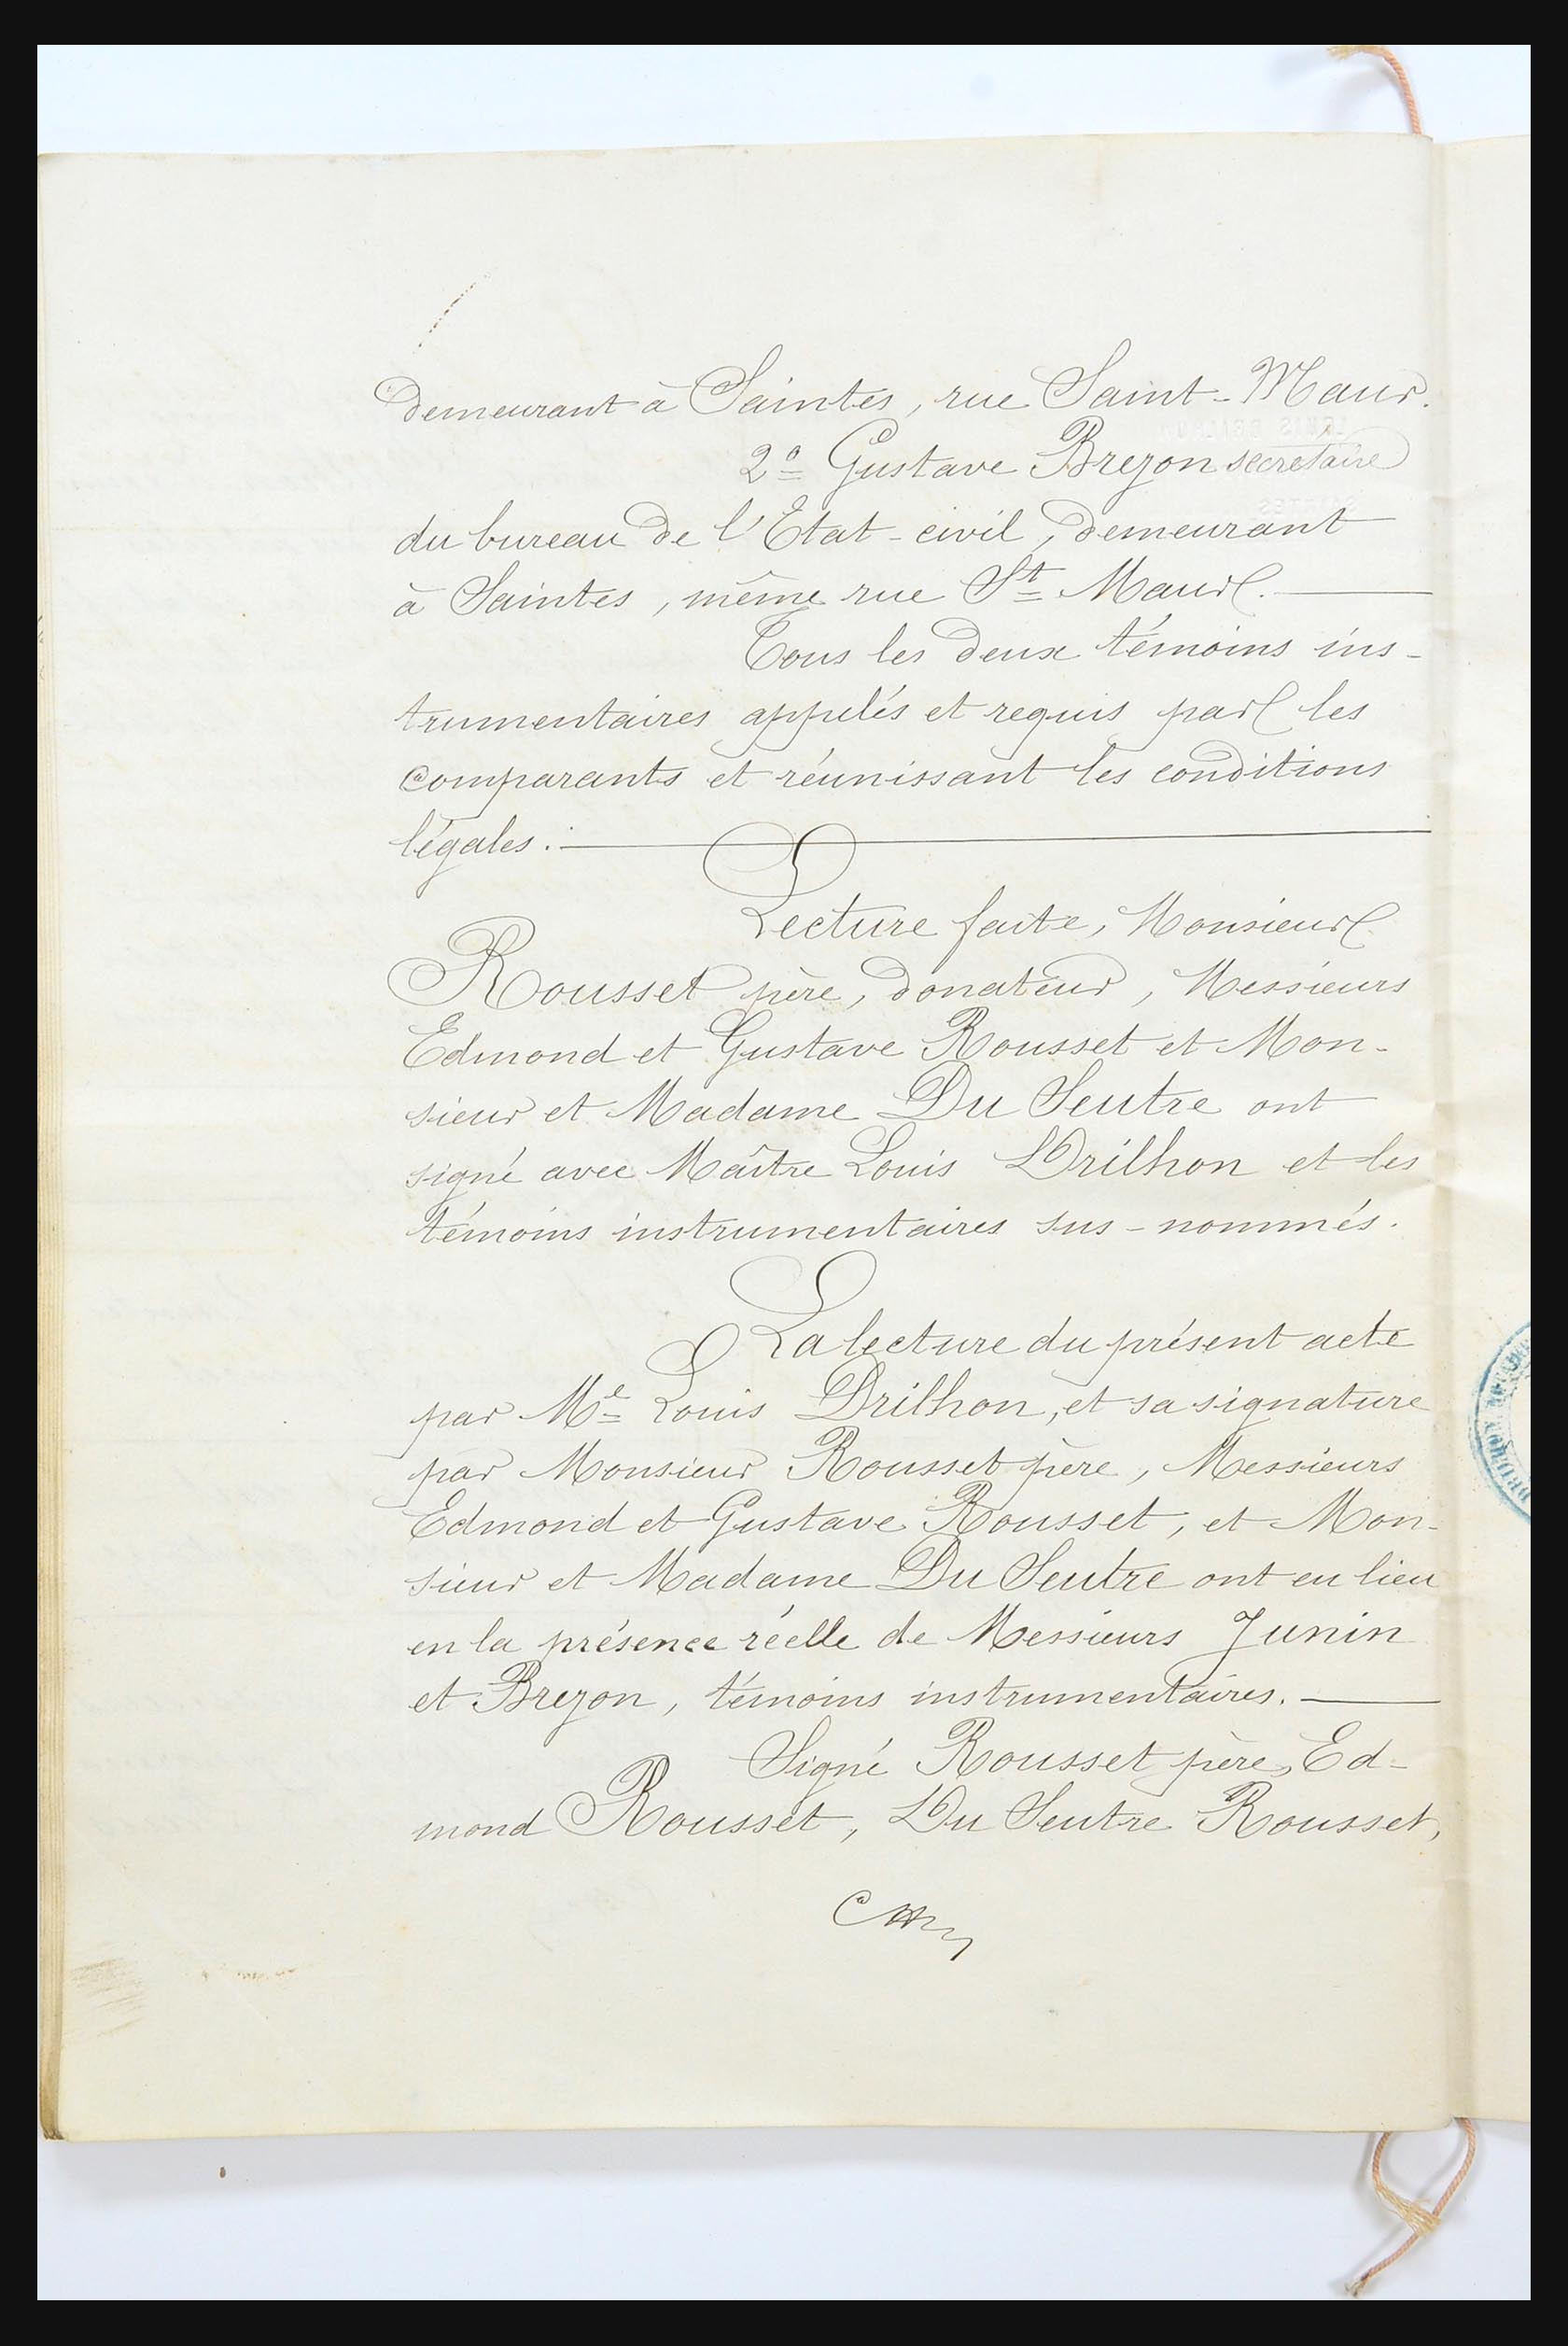 demeurant à Saintes, rue Saint-Maur.
2º Gustave Brezon secrétaire
du bureau de l'Etat-civil, demeurant
à Saintes, même rue St Maur.
Tous les deux témoins ins-
trumentaires appelés et requis par les
comparants et réunissant les conditions
légales.
Lecture faite, Monsieur
Rousset père, donateur, Messieurs
Edmond et Gustave Rousset et Mon-
sieur et Madame Du Seutre ont
signé avec Maître Louis Drilhon et les
témoins instrumentaires sus-nommés.
La lecture du présent acte
par Me Louis Drilhon, et sa signature
par Monsieur Rousset père, Messieurs
Edmond et Gustave Rousset, et Mon-
sieur et Madame Du Seutre ont eu lieu
en la présence réelle de Messieurs Junin
et Brezon, témoins instrumentaires.
Signé Rousset père, Ed-
mond Rousset, Du Seutre Rousset,